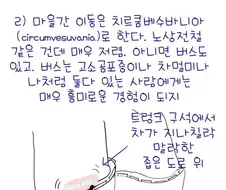 2) 마을간 이동은 치르쿰베수바니아
(circumvesuvania)로 한다. 노상전철
같은 건데 매우 저렴. 아니면 버스도
있고. 버스는 고소공포증이나 차멀미나
나처럼 둘다 있는 사람에게는
매우 흥미로운 경험이 되지
트렁크 구석에서
차가 지나칠락
말락한
좁은 도로 위